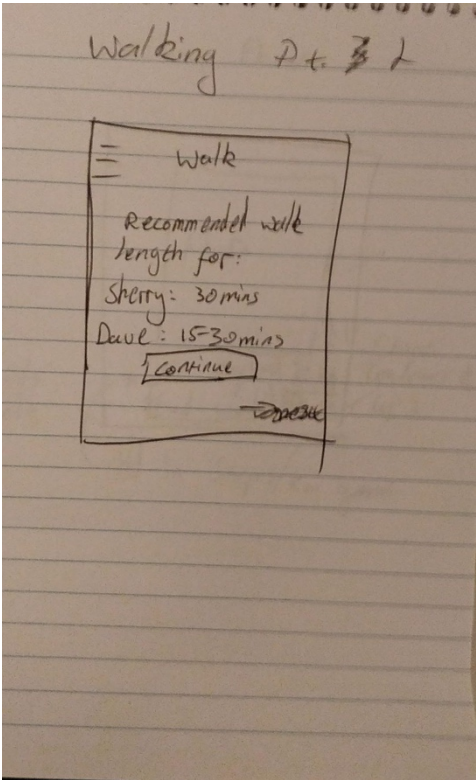 Walking Pt. 2
Walk
Recommended walk
length for:
Sherry: 30mins
Dave: 15-30mins
Continue